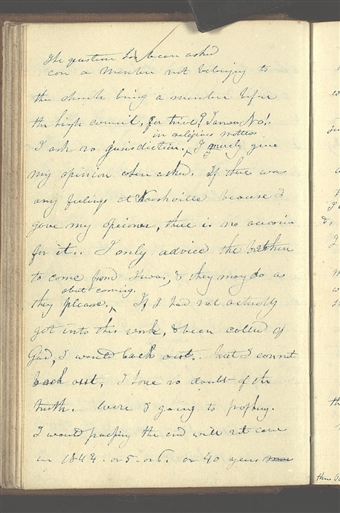 The question has been asked
can a member not belonging to
the church bring a member before
the high council, for trial? I answer No!
in religious matters
I ask no jurisdiction. I merely give
my opinion when asked. If there was
any feelings at Nashville because I
gave my opinion, there is no occasion
for it. I only advice the brethren
to come from Iowa, & they may do as
about coming.
they please. If I had not actually
got into this work, & been called of
God, I would back out. but I cannot
back out, I have no doubt of the
truth. were I going to prophecy.
I would prophecy the end will not come
in 1844. or 5. or 6. or 40 years more